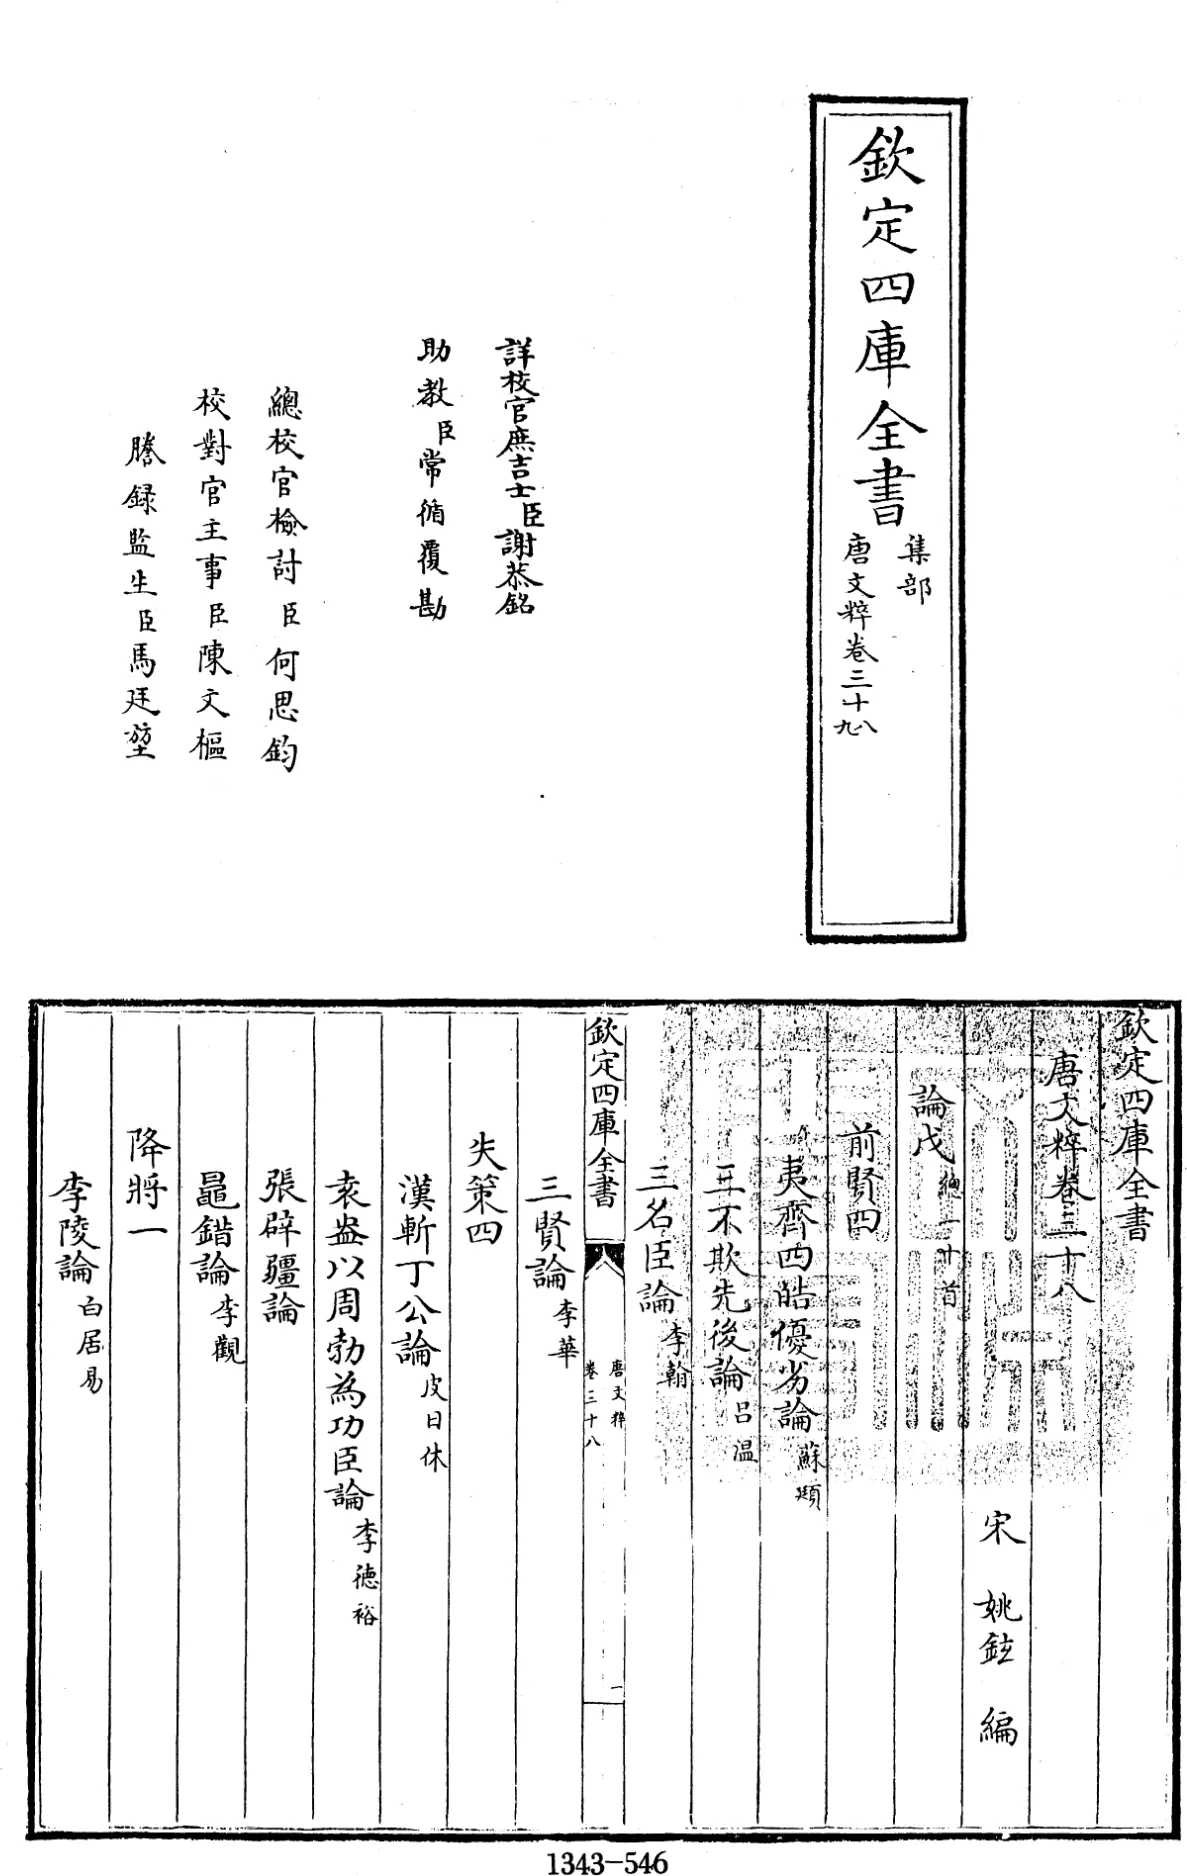 欽定四庫全書
集部
唐文粹卷三十八
九
詳校官庶吉士臣謝恭銘
助教臣常循覆勘
總校官檢討臣何思鈞
校對官主事臣陳文樞
謄録監生臣馬廷
欽定四庫全書
唐文粹卷三十八
宋 姚鉉 編
論戊總一十首
前賢四
夷齊四皓優劣論蘇頲
三不欺先後論吕温
三名臣論李翰
欽定四庫全書
唐文粹
卷三十八
一
三賢論李華
失策四
漢斬丁公論皮日休
袁盎以周勃為功臣論李德裕
張辟疆論
鼂錯論李觀
降將一
李陵論白居易
1343-546